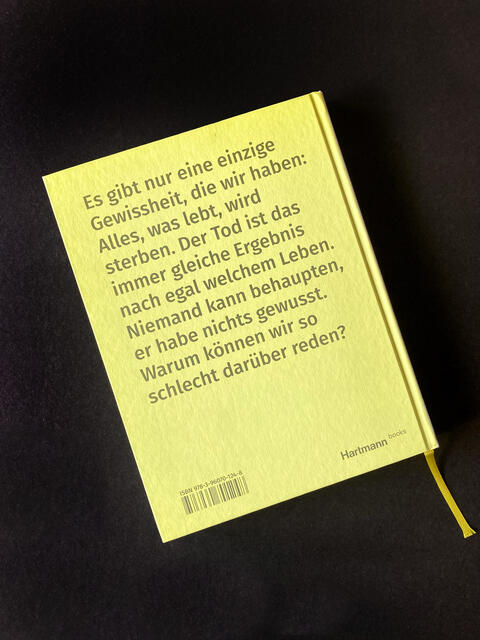 Es gibt nur eine einzige
Gewissheit, die wir haben:
Alles, was lebt, wird
sterben. Der Tod ist das
immer gleiche Ergebnis
nach egal welchem Leben.
Niemand kann behaupten,
er habe nichts gewusst.
Warum können wir so
schlecht darüber reden?
Hartmann books
ISBN 978-3-96070-124-8